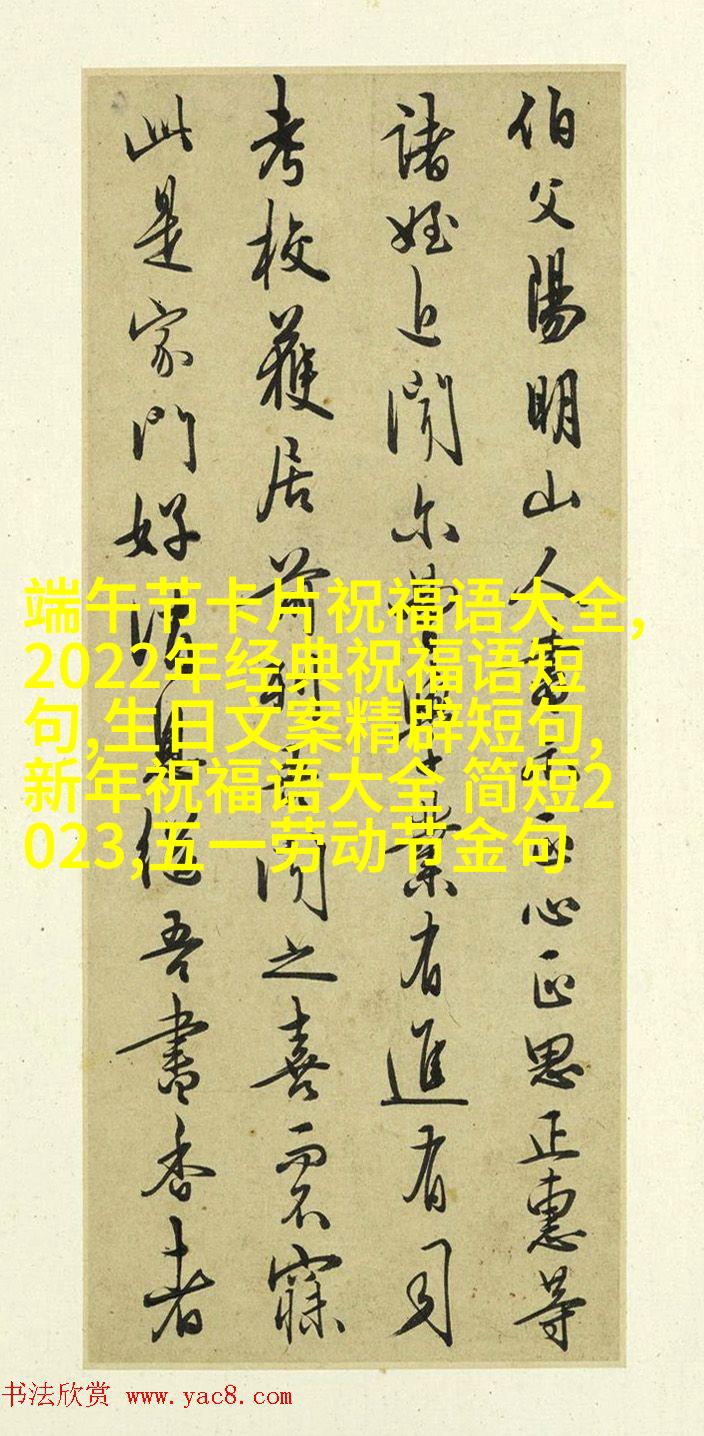 伯父陽明山人書示正心正思正惠等
諸姪近聞尔曹學業有進有司
考校獲居前列吾聞之喜而不寐
此是家門好消息繼吾書香者
端午节卡片祝福语大全,
2022年经典祝福语短
句,生日文案精辟短句,
新年祝福语大全 简短2
023,五一劳动节金句
书法欣赏 www.yac8.com